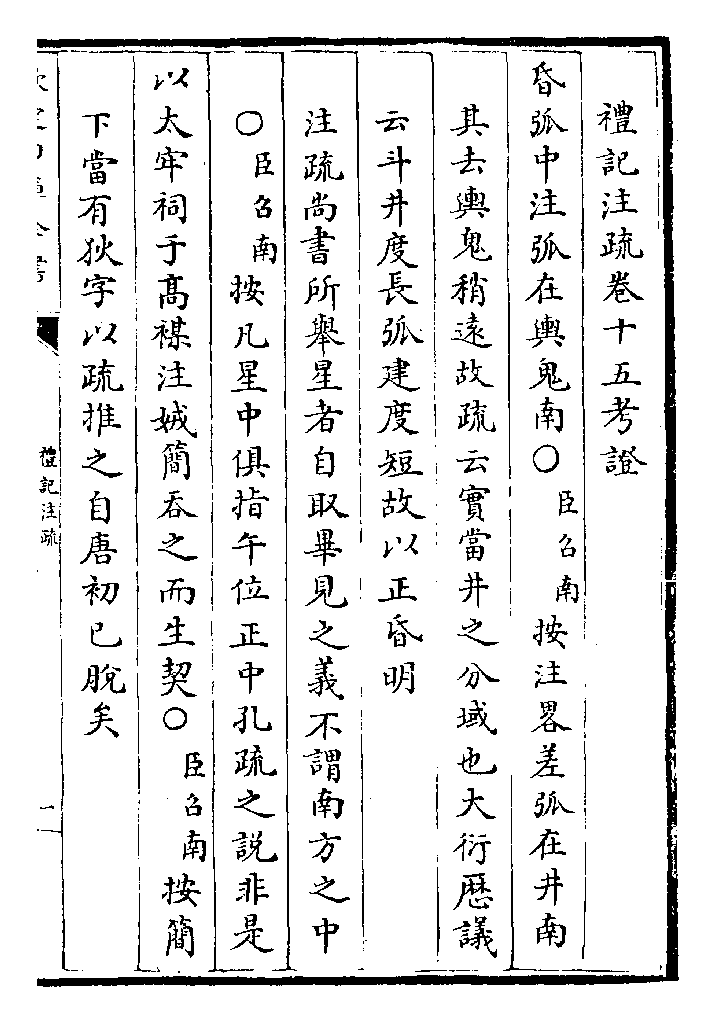 禮記注疏卷十五考證
昏弧中注弧在輿鬼南〇臣召南按注畧差弧在井南
其去輿鬼稍遠故疏云實當井之分域也大衍厯議
云斗井度長弧建度短故以正昏明
注疏尚書所舉星者自取畢見之義不謂南方之中
〇臣召南按凡星中俱指午位正中孔疏之説非是
以太牢祠于髙禖注娀簡吞之而生契〇臣召南按簡
下當有狄字以疏推之自唐初已脫矣
禮記注疏